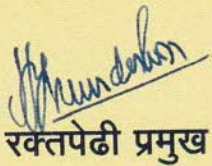 रक्तपेढी प्रमुख